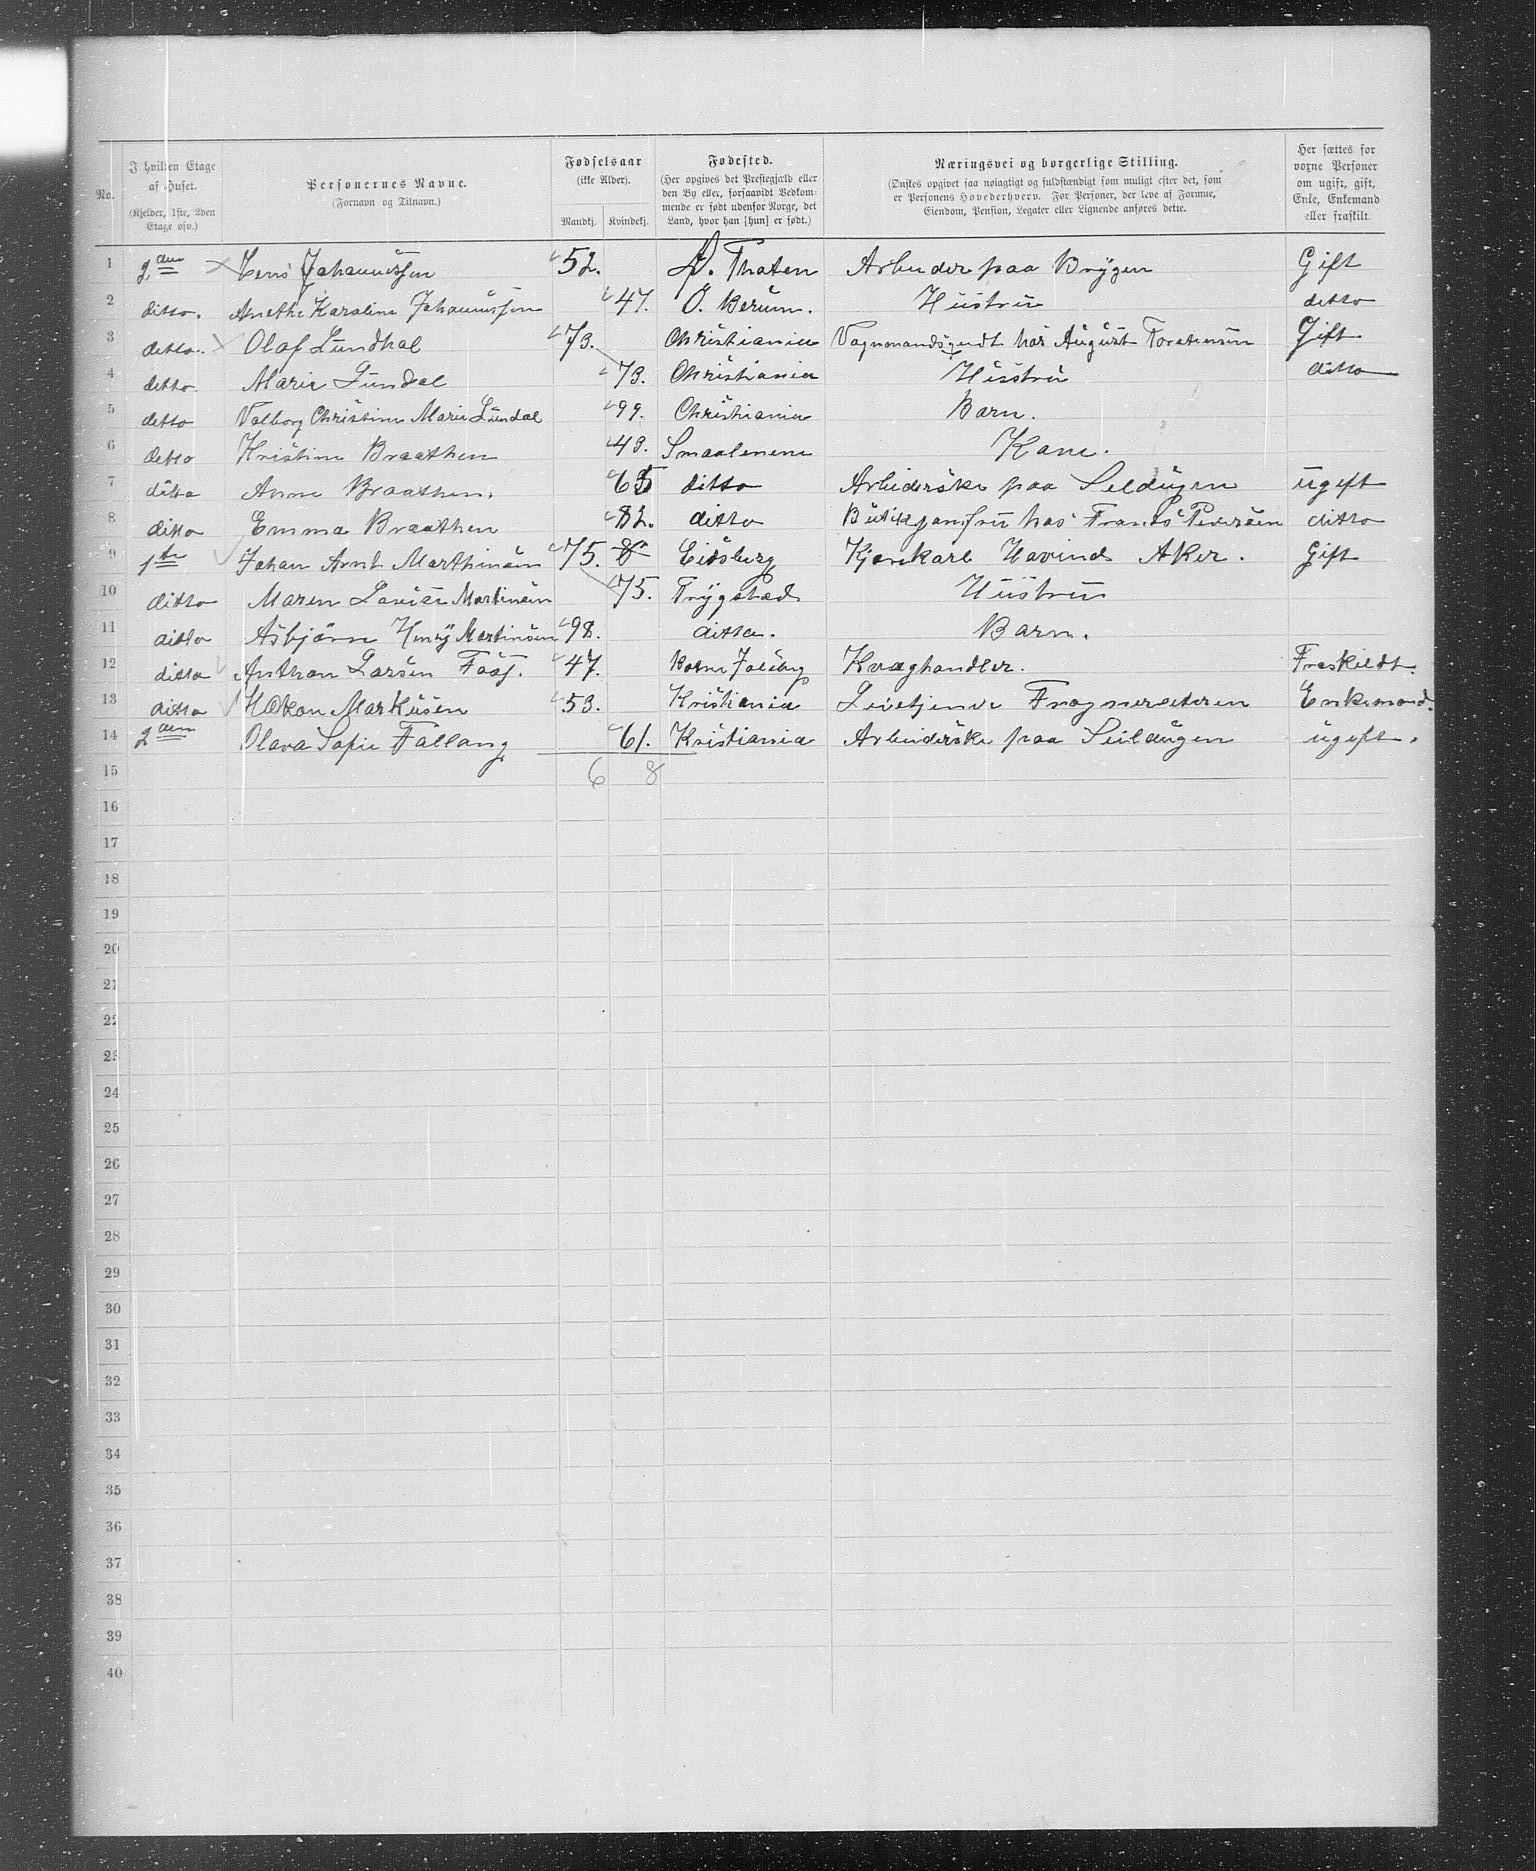 No.
I hvilken Etage af Huset. (Kjelder, 1ste, 2den Etage osv.)
Personernes Navne. (Fornavn og Tilnavn.)
Fødselsaar (ikke Alder). Mandkj. Kvindekj.
Fødested. (Her opgives det Prestegjæld eller den By eller, forsaavidt Vedkommende er født udenfor Norge, det Land, hvor han [hun] er født.)
Næringsvei og borgerlige Stilling. (Ønskes opgivet saa nøiagtigt og fuldstændigt som muligt efter det, som er Personens Hovederhverv. For Personer, der leve af Formue, Eiendom, Pension, Legater eller Lignende anføres dette.)
Her sættes for voxne Personer om ugift, gift, Enke, Enkemand eller fraskilt.
1 2den Jens Johannessen 52. Arbeider paa Brygen Gift
2 ditto. Anethe Karoline Johannessen 47. Ö. Berum. Hustru ditto
3 ditto. Olaf Lundhal 73. Christiania Vognmandsgudt hos August Gift
4 ditto Marie Lundal 73. Christiania Husstru ditto
5 ditto Valborg Christine Marie Lundal 99. Christiania Barn.
6 ditto Kristine Braathen 43. Smaalenene Kone.
7 ditto Anne Braathen. 65 ditto Arbiderske paa Seldugen ugift
8 ditto Emma Braathen 82. ditto Butikjomfru hos Frants Pedersen ditto
9 1ste Johan Arnt Marthinsen 75. Eidsberg Kjørekarl Hovind Aker. Gift
10 ditto Maren Lovise Martinsen 75. Trygstad Hustru
11 ditto Asbjørn Henry Martinsen 98. ditto. Barn.
12 ditto Anthon Larsen 47. Kvæghandler. Fraskildt.
13 ditto Håkon Markusen 53. Kristiania Enkemand.
14 2den Olava Sofie Fallang 61. Kristiania Arbeiderske paa Seildugen ugift.
15 6 8
16
17
18
19
20
21
22
23
24
25
26
27
28
29
30
31
32
33
34
35
36
37
38
39
40